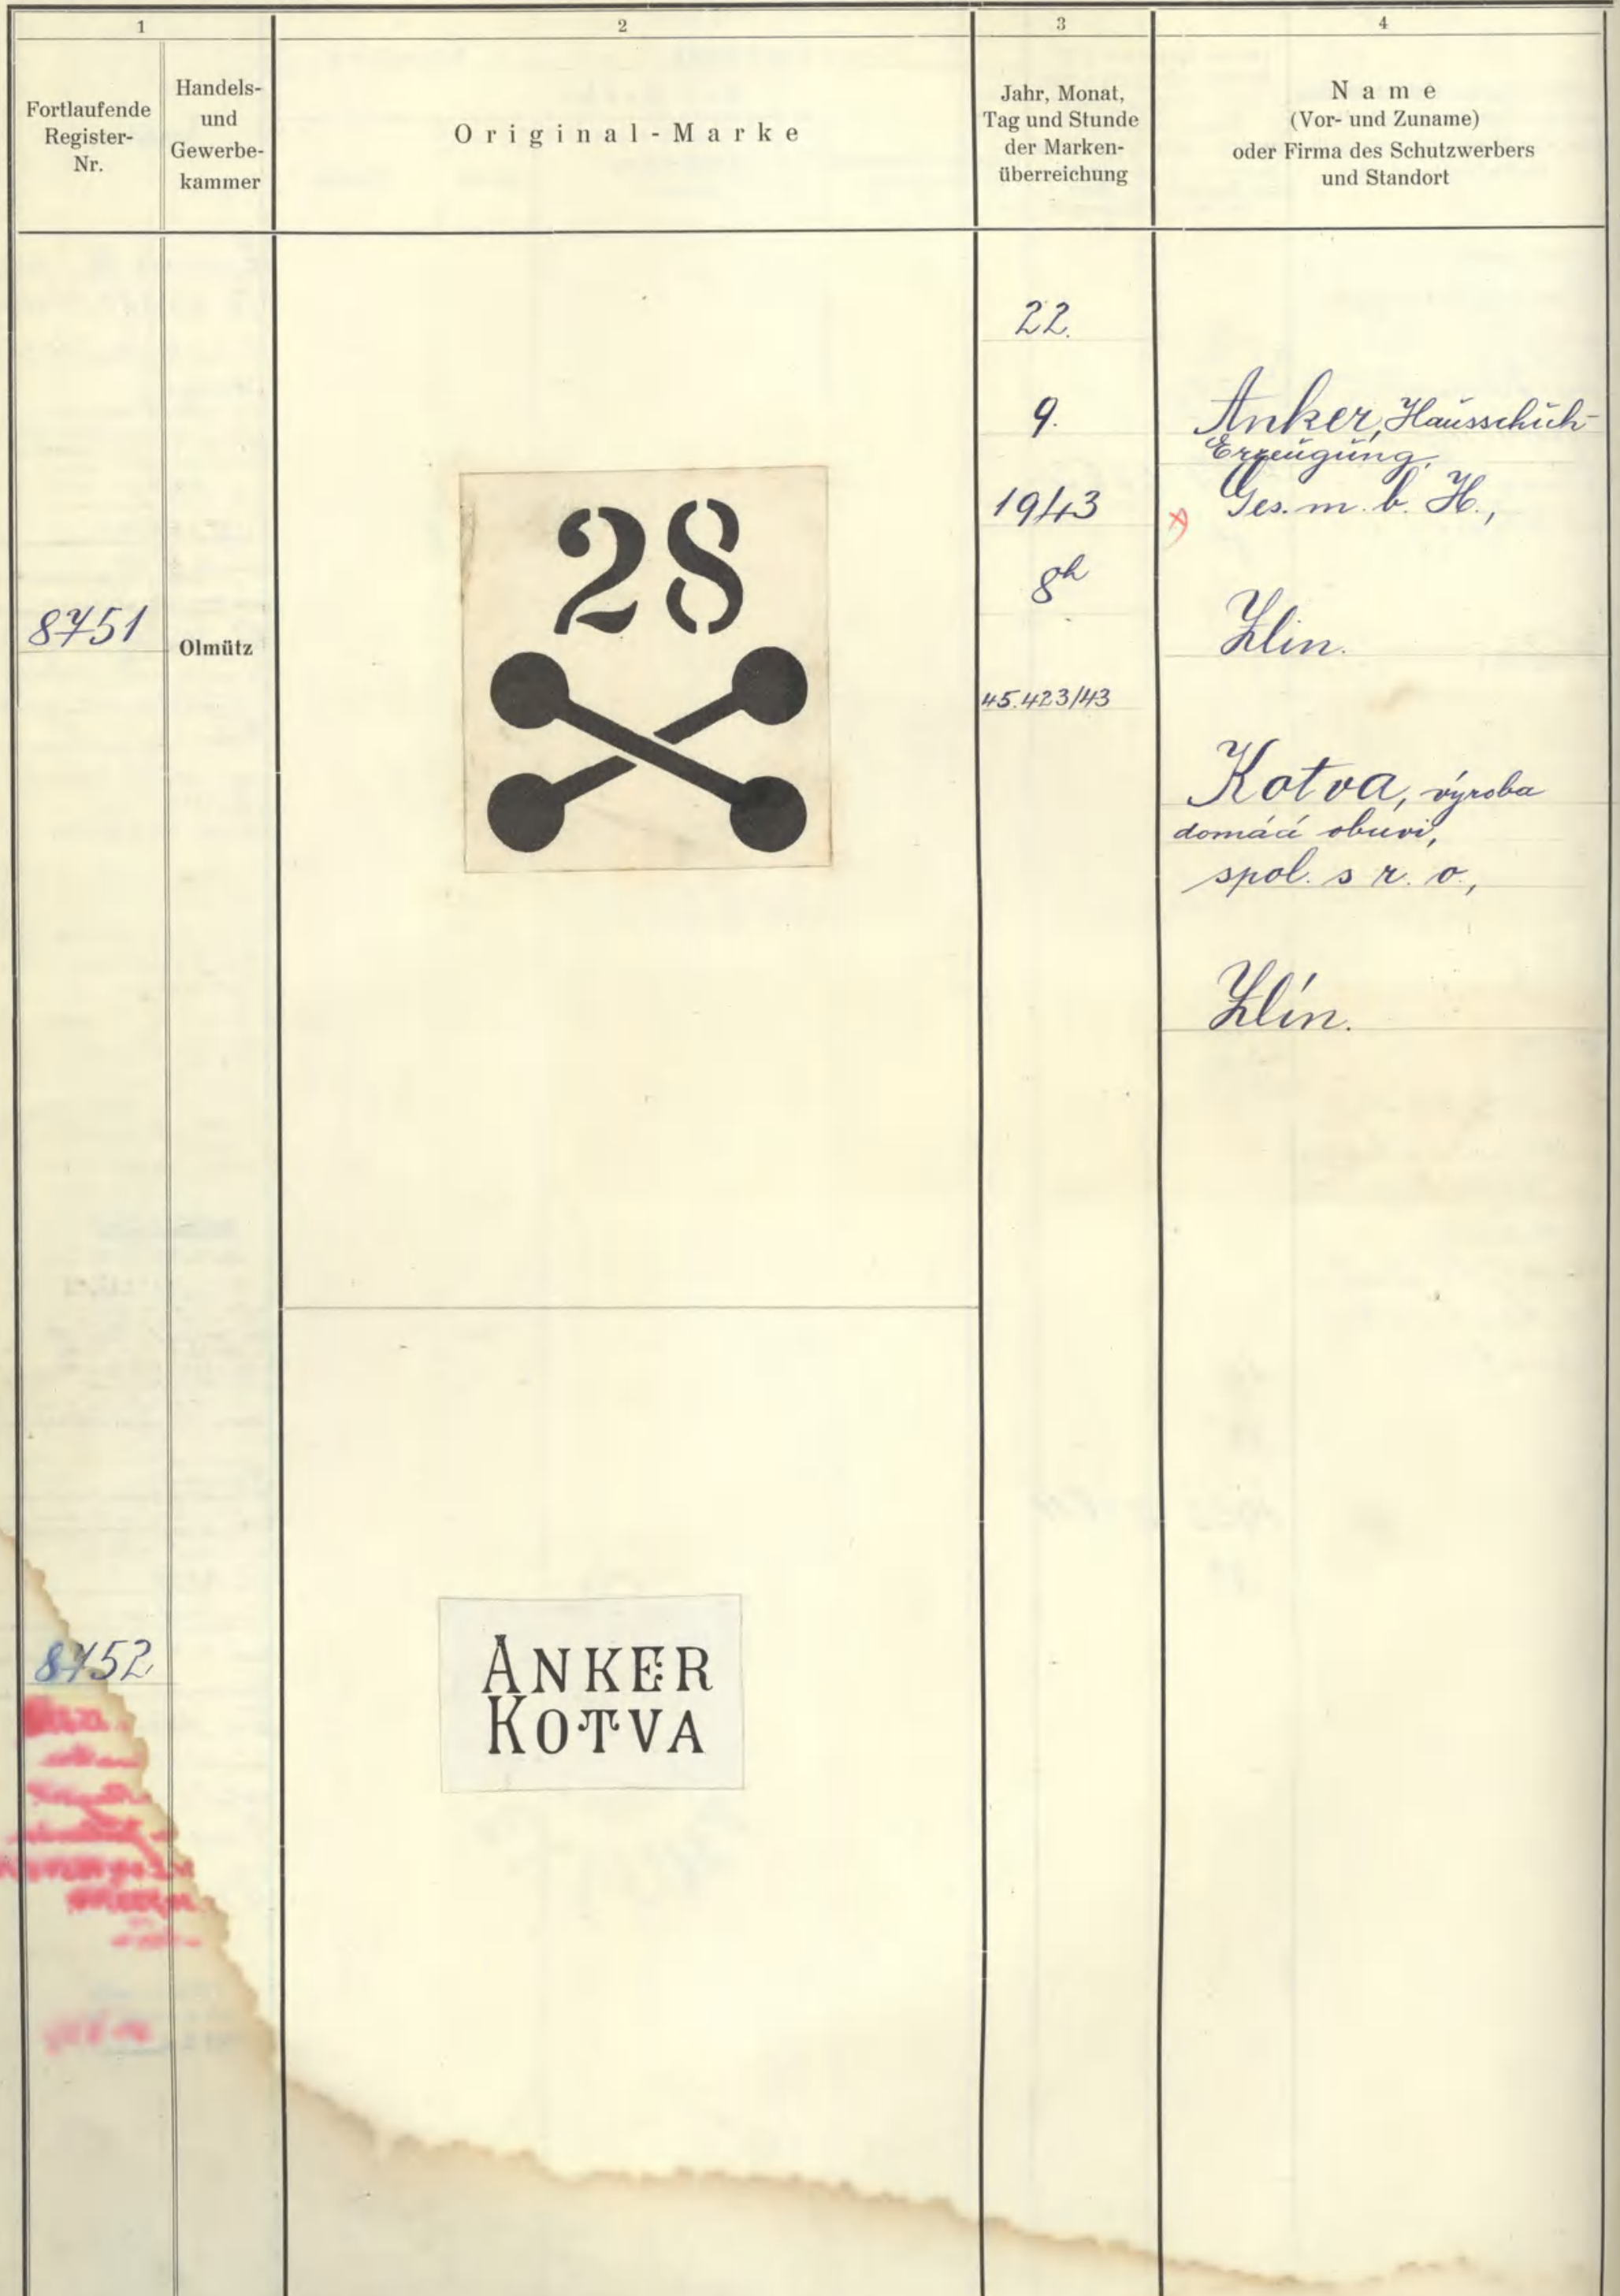 1
2
3
4
Fortlaufende
Register-
Nr.
Handels-
und
Gewerbe-
kammer
Original-Marke
Jahr, Monat,
Tag und Stunde
der Marken-
überreichung
Name
(Vor- und Zuname)
oder Firma des Schutzwerbers
und Standort
8751
Olmütz
28
22.
9.
1943
8h
45.423/43
Anker, Hausschuh-
Erzeugung,
Ges. m. b. H.,
Zlin.
Kotva, výroba
domácí obuvi,
spol. s r. o.,
Zlín.
8752
ANKER
KOTVA